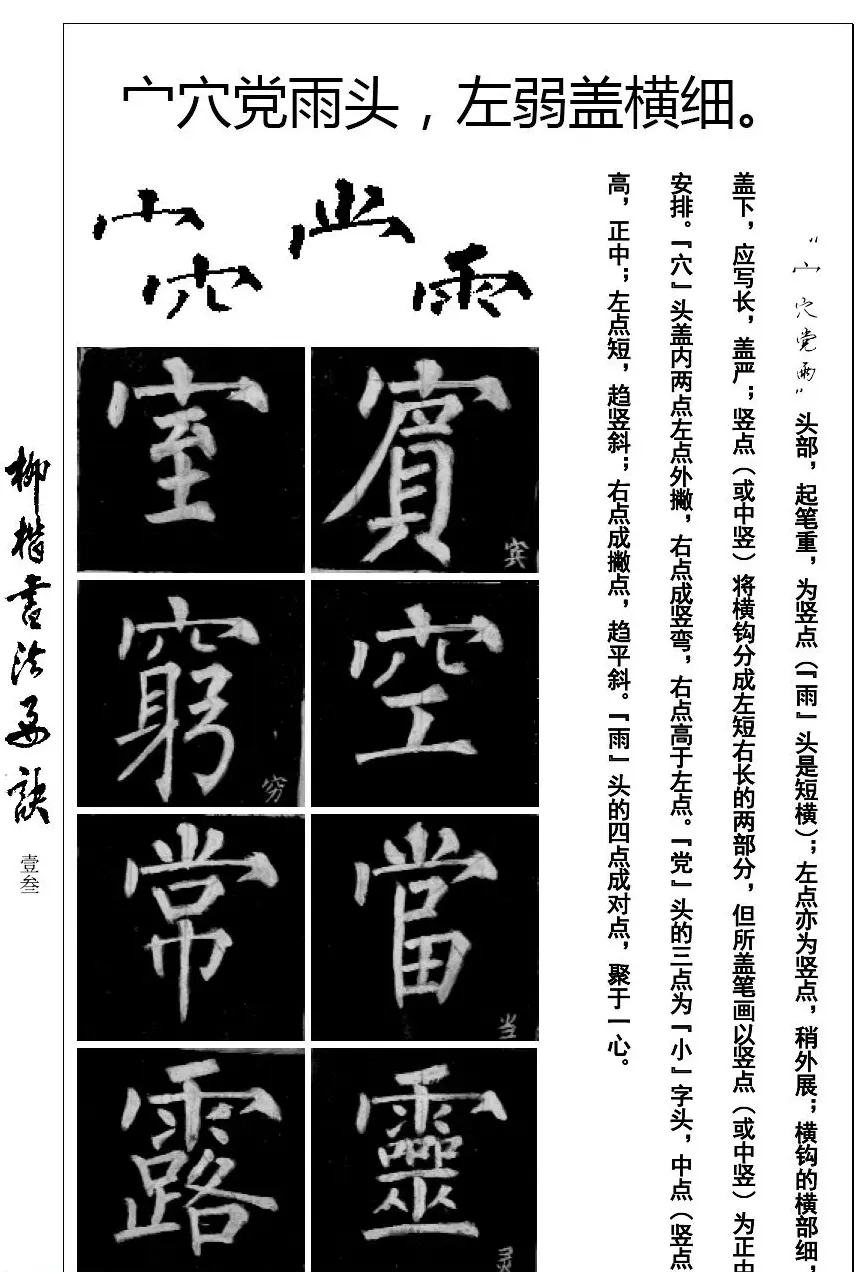 宀穴党雨头，左弱盖横细。
“宀穴党雨”头部，起笔重，为竖点（『雨』头是短横）；左点亦为竖点，稍外展；横钩的横部细，
盖下，应写长，盖严；竖点（或中竖）将横钩分成左短右长的两部分，但所盖笔画以竖点（或中竖）为正中
安排。『穴』头盖内两点左点外撇，右点成竖弯，右点高于左点。『党』头的三点为『小』字头，中点（竖点
高，正中；左点短，趋竖斜；右点成撇点，趋平斜。『雨』头的四点成对点，聚于一心。
宀
穴
雨
室
賓
宾
窮
穷
空
常
當
当
露
靈
灵
柳楷书法要诀
壹叁